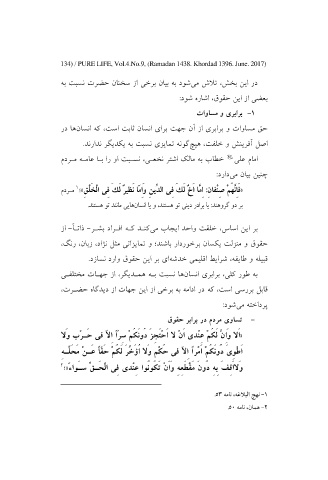 134) / PURE LIFE, Vol.4.No.9, (Ramadan 1438. Khordad 1396. June. 2017)
در این بخش، تلاش می‌شود به بیان برخی از سخنان حضرت نسبت به
بعضی از این حقوق، اشاره شود:
۱- برابری و مساوات
حق مساوات و برابری از آن جهت برای انسان ثابت است، که انسان‌ها در
اصل آفرینش و خلقت، هیچ‌گونه تمایزی نسبت به یکدیگر ندارند.
امام علی خطاب به مالک اشتر نخعی، نسبت او را با عامه مردم
چنین بیان می‌دارد:
«فَاِنَّهُمْ صِنْفَانِ: اِمَّا اَخٌ لَکَ فِی الدِّینِ وَاِمَّا نَظِیرٌ لَکَ فِی الْخَلْقِ»؛۱ مردم
بر دو گروهند: یا برادر دینی تو هستند، و یا انسان‌هایی مانند تو هستند.
بر این اساس، خلقت واحد ایجاب می‌کند که افراد بشر- ذاتـاً- از
حقوق و منزلت یکسان برخوردار باشند؛ و تمایزاتی مثل نژاد، زبان، رنگ،
قبیله و طایفه، شرایط اقلیمی خدشه‌ای بر این حقوق وارد نسازد.
به طور کلی، برابری انسان‌ها نسبت به همدیگر، از جهات مختلفی
قابل بررسی است، که در ادامه به برخی از این جهات از دیدگاه حضرت،
پرداخته می‌شود:
- تساوی مردم در برابر حقوق
«اَلَا وَاِنَّ لَکُمْ عِنْدِی اَنْ لَا اَحْتَجِزَ دُونَکُمْ سِرّاً اِلَّا فِی حَرْبٍ وَلَا
اَطْوِیَ دُونَکُمْ اَمْراً اِلَّا فِی حُکْمٍ وَلَا اُؤَخِّرَ لَکُمْ حَقّاً عَنْ مَحَلِّهِ
وَلَااَقِفَ بِهِ دُونَ مَقْطَعِهِ وَاَنْ تَکُونُوا عِنْدِی فِی الْحَقِّ سَوَاءً»؛۲
۱- نهج البلاغه، نامه ۵۳.
۲- همان، نامه ۵۰.